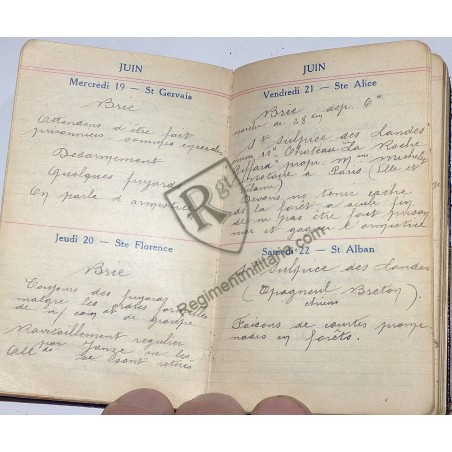 JUIN
Mercredi 19 - St Gervais
Brie
Attendons d'être fait
prisonniers sommes
Désarmement
Quelques fuyards
On parle d'armistice
Jeudi 20 - Ste Florence
Brie
Toujours des fuyards
malgré les
de n/ com et de groupe
Ravitaillement régulier
par Janzé ou les
se sont retirés
JUIN
Vendredi 21 - Ste Alice
Brie
marche de 28 km dep. 6h
St Sulpice des Landes
Chateau La Roche
Giffard prop. Mm
à Paris (Ille et
Devons ns tenir caché
ds la forêt à seule fin
de ne pas être fait prison
nier et gagner l'armistice
Samedi 22 - St Alban
Sulpice des Landes
(Epagneul Breton)
chiens
Faisons de courtes prome
nades en forêts.
Rgt
Regimentmilitaria.com